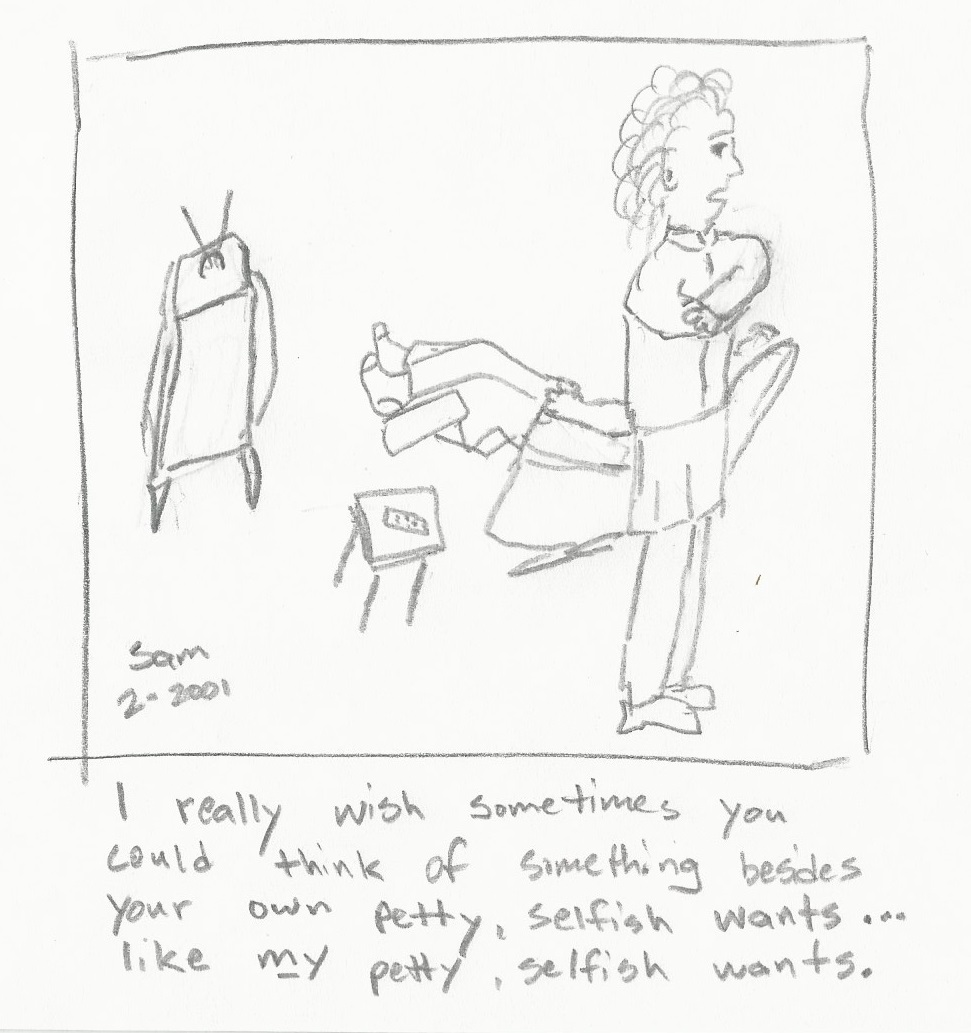 Sam
2-2001
I really wish sometimes you
could think of something besides
your own petty, selfish wants...
like my petty, selfish wants.